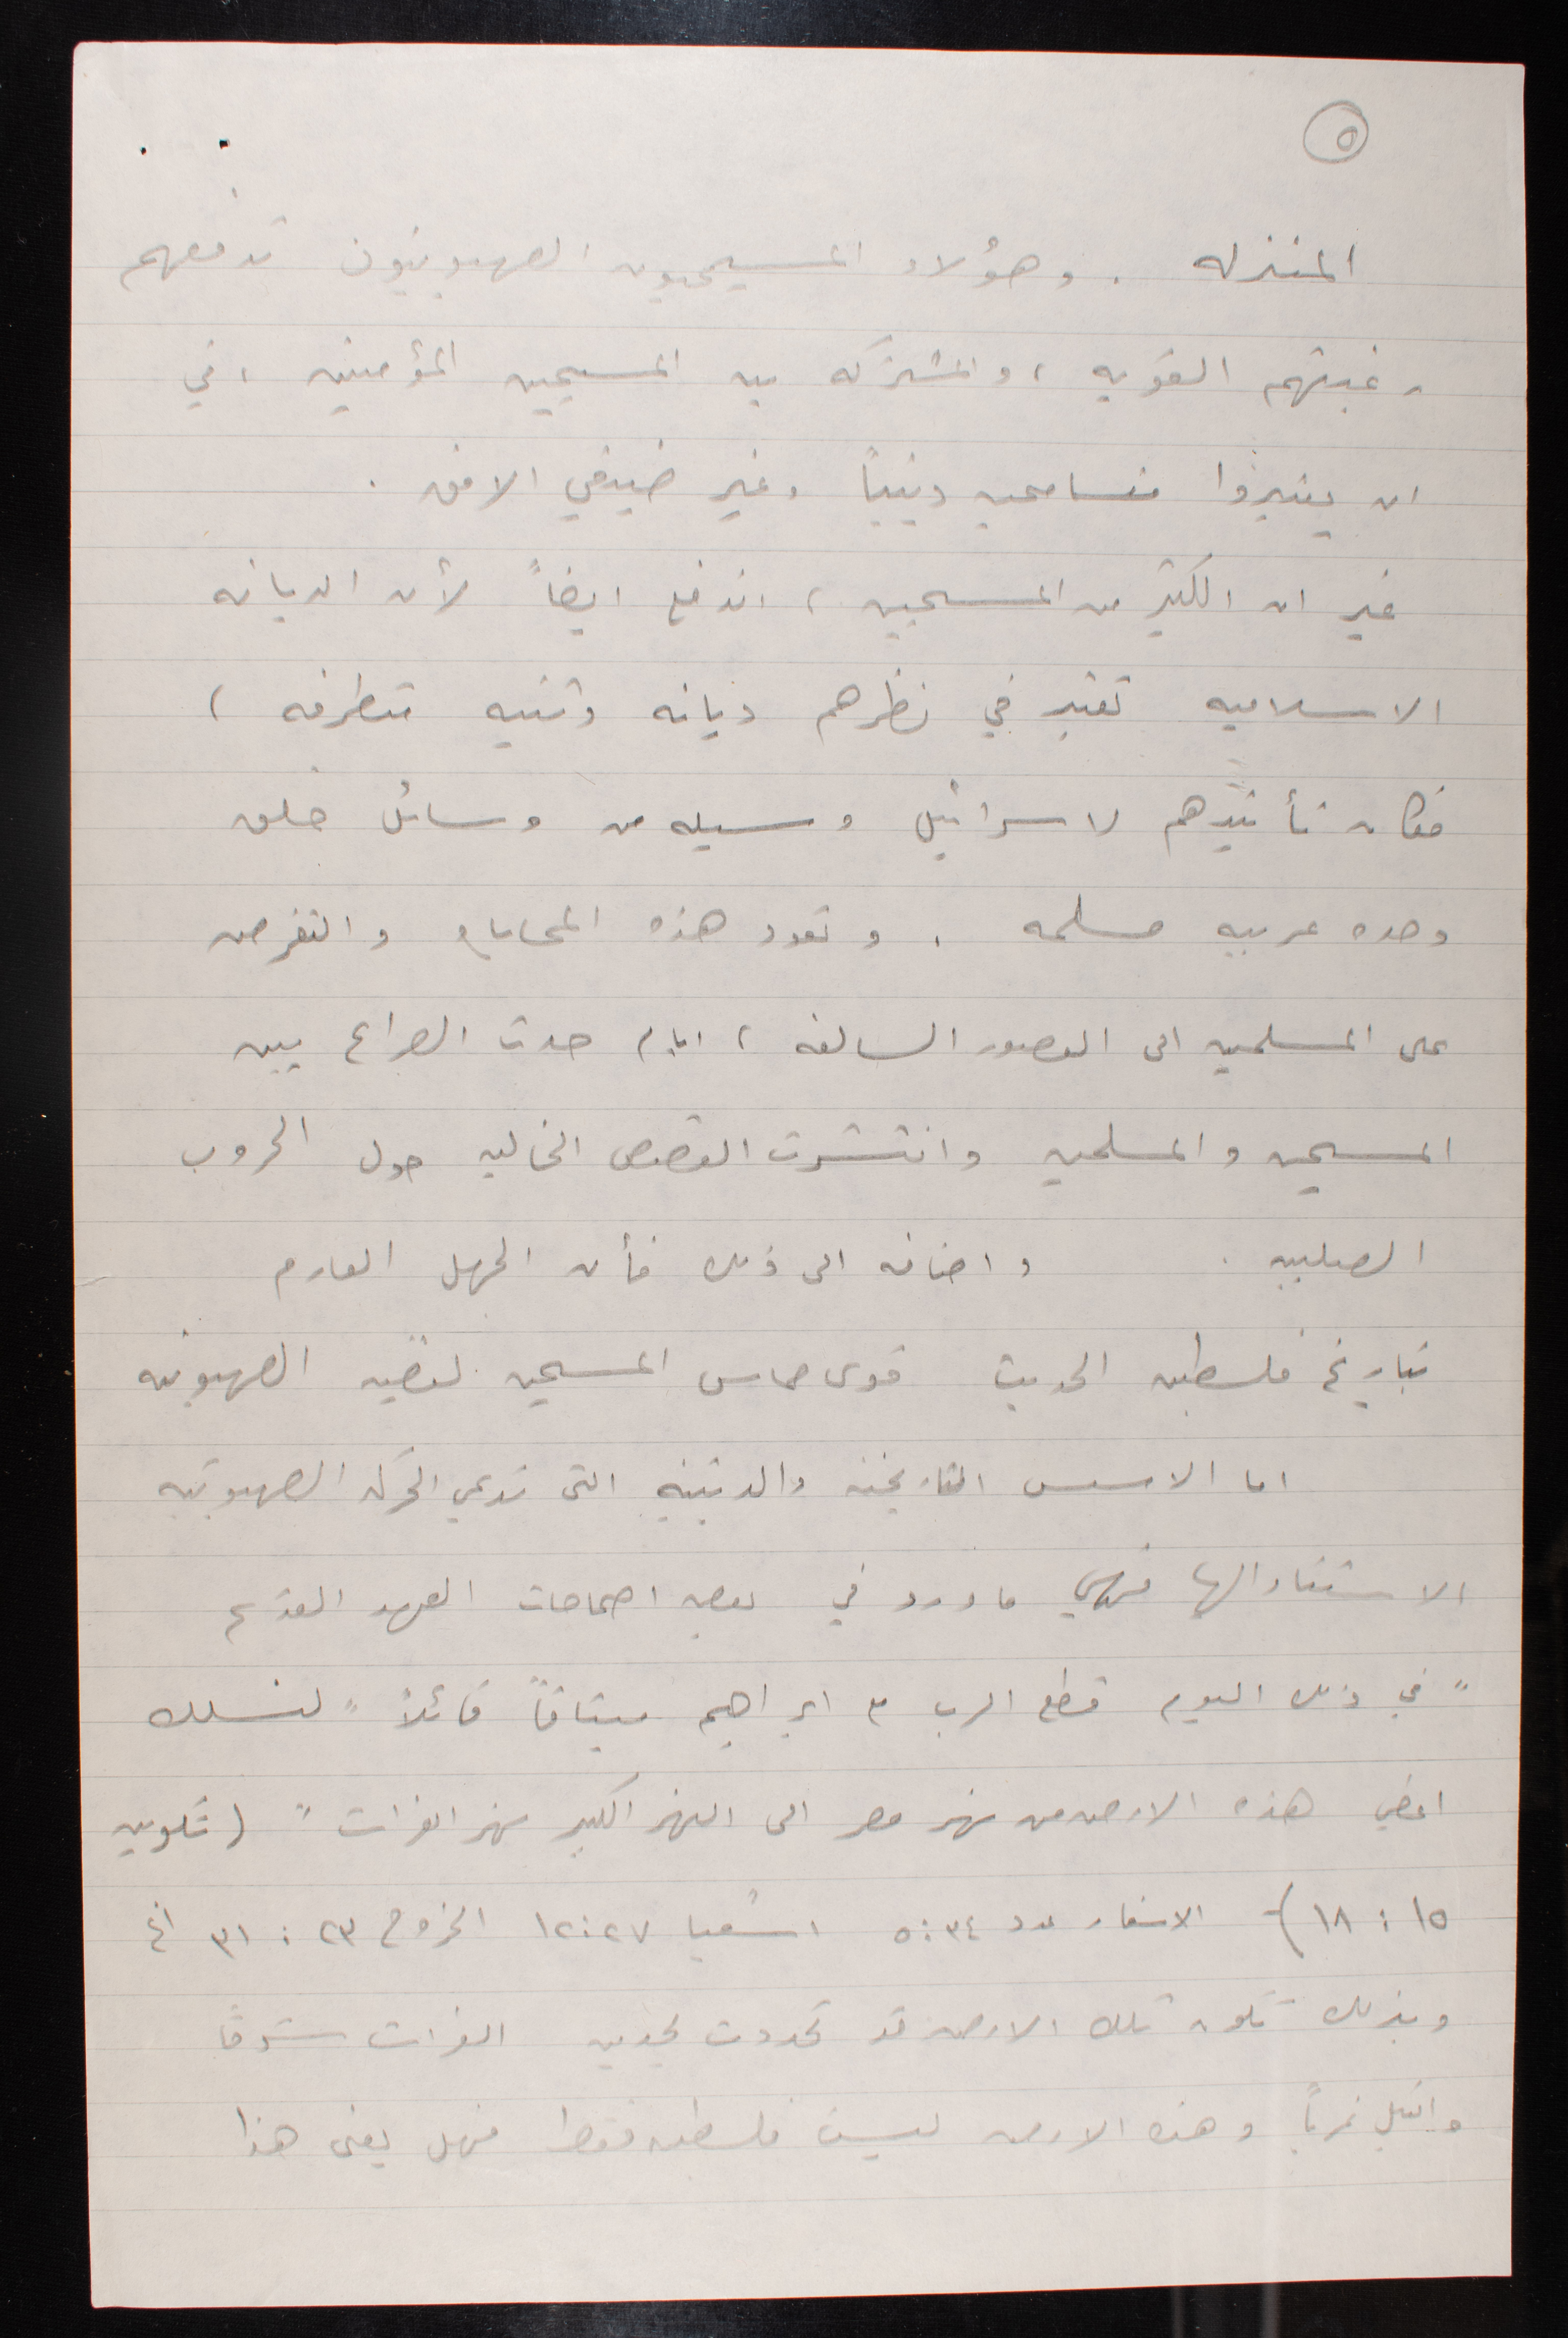 ٥
المنزله . وهؤلاء المسيحيون الصهيونيون تدفعهم
رغبتهم القويه ، والمشتركه بين المسيحيين المؤمنين ، في
ان يعتبروا متسامحين دينياً وغير ضيقي الافق .
غير ان الكثير من المسيحيين ، اندفع ايضاً لأن الديانه
الاسلاميه تعتبر في نظرهم ديانه وثنيه متطرفه ،
فكان تأييدهم لاسرائيل وسيله من وسائل خلق
وحده عربيه مسلمه . وتعود هذه المحاباه والتغرض
على المسلمين الى العصور السالفه ، ايام حدة الصراع بين
المسيحين والمسلمين وانتشرت القصص الخياليه حول الحروب
الصليبيه . واضافه الى ذلك فأن الجهل العارم
بتاريخ فلسطين الحديث قوى حماس المسيحين لقضيه الصهيونيه
اما الاسس التاريخيه والدينيه التى تدعي الحركه الصهيونيه
الاستناد اليها فهي ما ورد في بعض اصحاحات العهد القديم
" في ذلك اليوم قطع الرب مع ابراهيم ميثاقاً قائلاً " لنسلك
اعطي هذه الارض من نهر مصر الى النهر الكبير نهر الفرات " ( تكوين
١٥ : ١٨ ) - الاسفار عدد ٣٤ : ٥ اشعيا ٢٧ : ١٢ الخروج ٢٣ : ٣١ الخ
وبذلك تكون تلك الارض قد تحددت بحدين الفرات شرقاً
والنيل غرباً وهذه الارض ليست فلسطين فقط فهل يعنى هذا